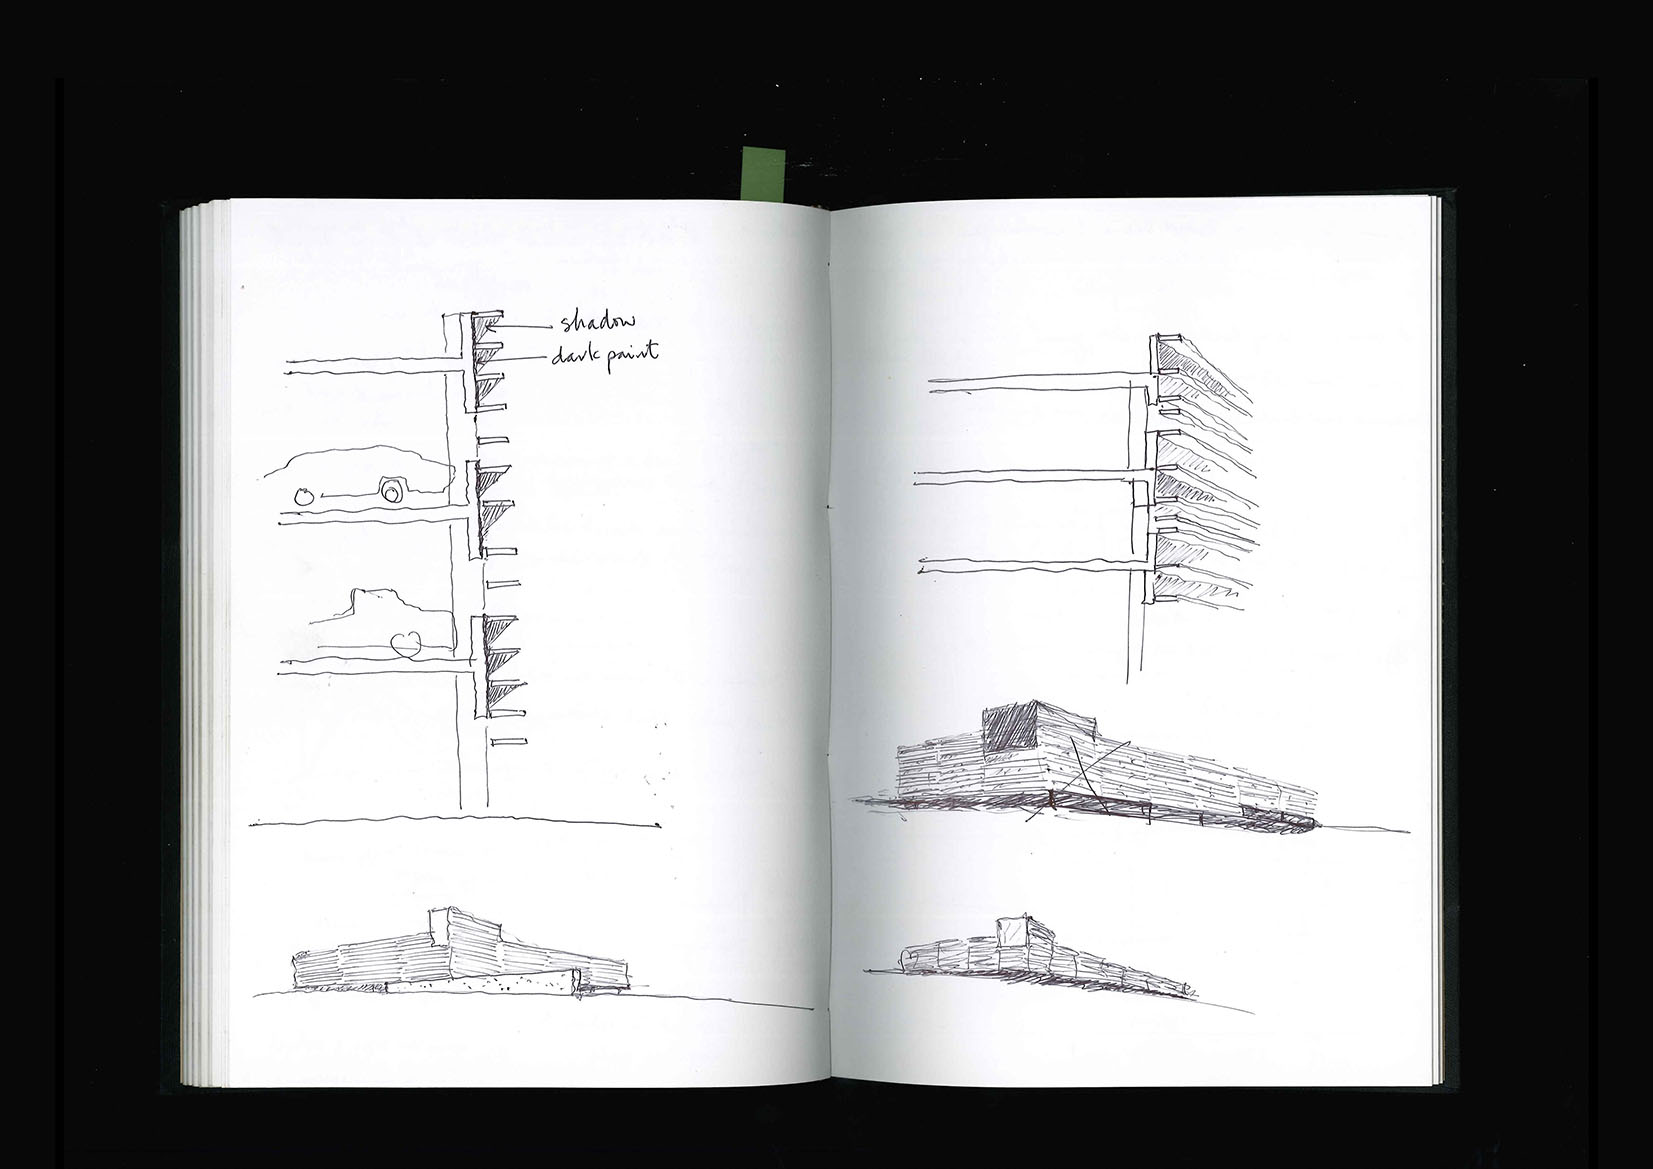 shadow
dark paint